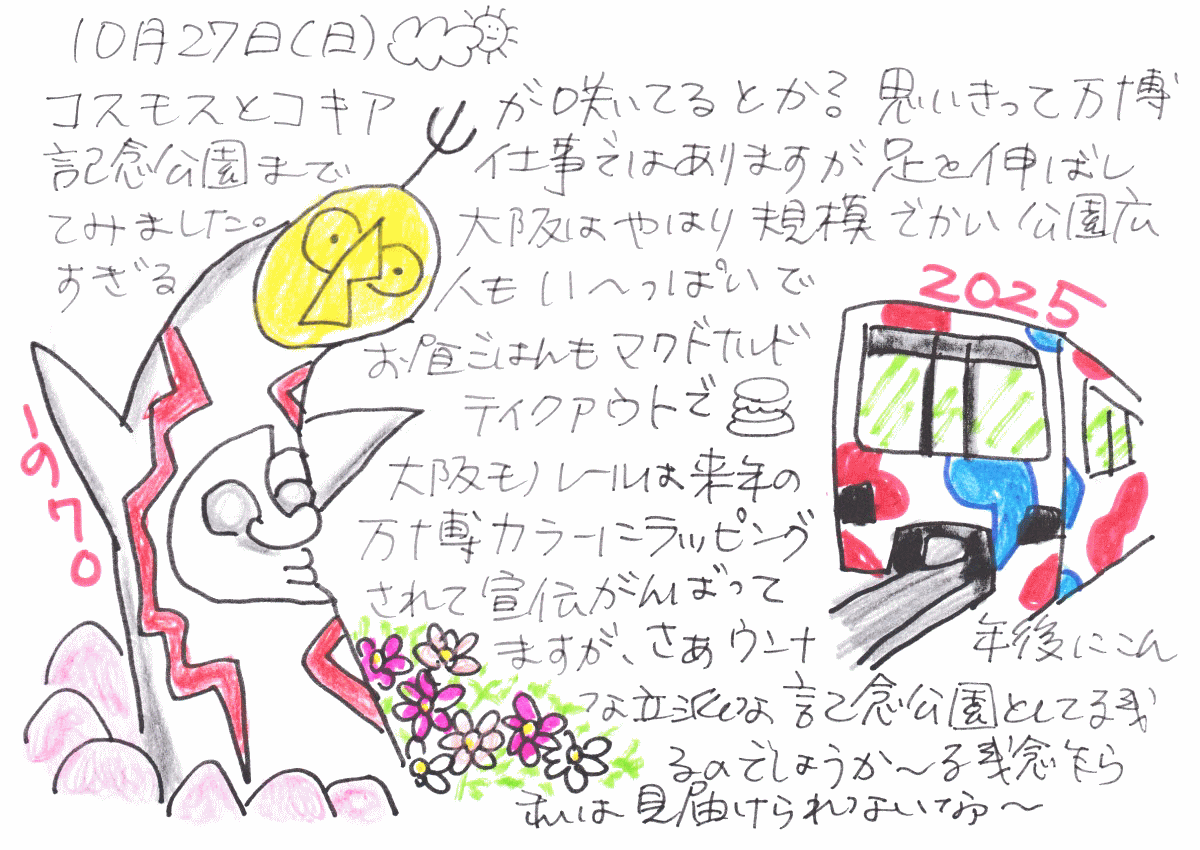 10月27日(日)
コスモスとコキアが咲いてるとか? 思いきって万博
記念公園まで 仕事ではありますが足を伸ばし
てみました。大阪はやはり規模でかい公園広
すぎる 人もい〜っぱいで
2025
お昼ごはんもマクドナルド
テイクアウトで
大阪モノレールは来年の
万博カラーにラッピング
されて宣伝がんばって
ますが、さあウン十年後にこん
な立派な記念公園として残
るのでしょうか〜残念ながら
私は見届けられないなあ〜
1970